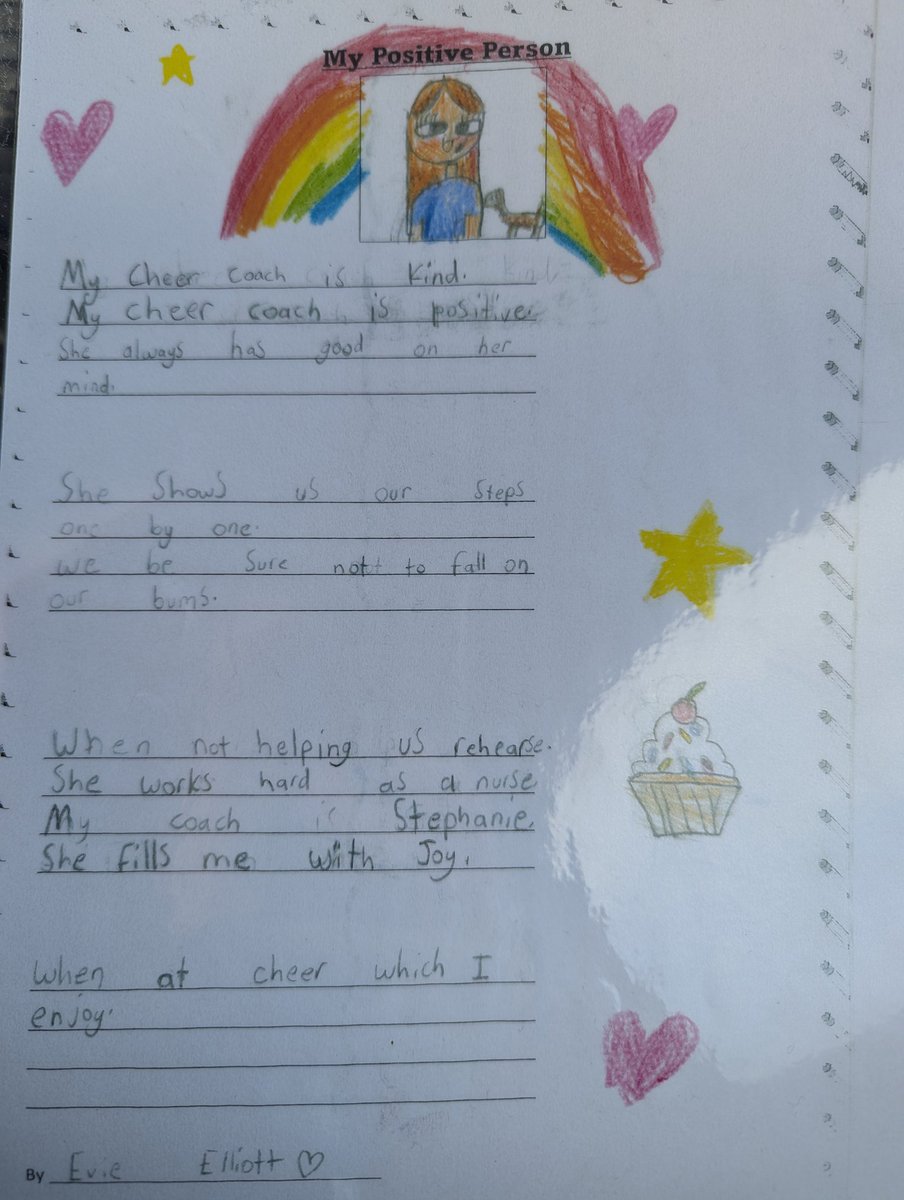 My Positive Person
My Cheer coach is kind.
My cheer coach is positive.
She always has good on her
mind.
She Shows us our Steps
one by one.
we be Sure not to fall on
our bums.
When not helping us rehearse.
She works hard as a nurse
My coach is Stephanie
She fills me with Joy.
When at cheer which I
enjoy.
By Evie Elliott